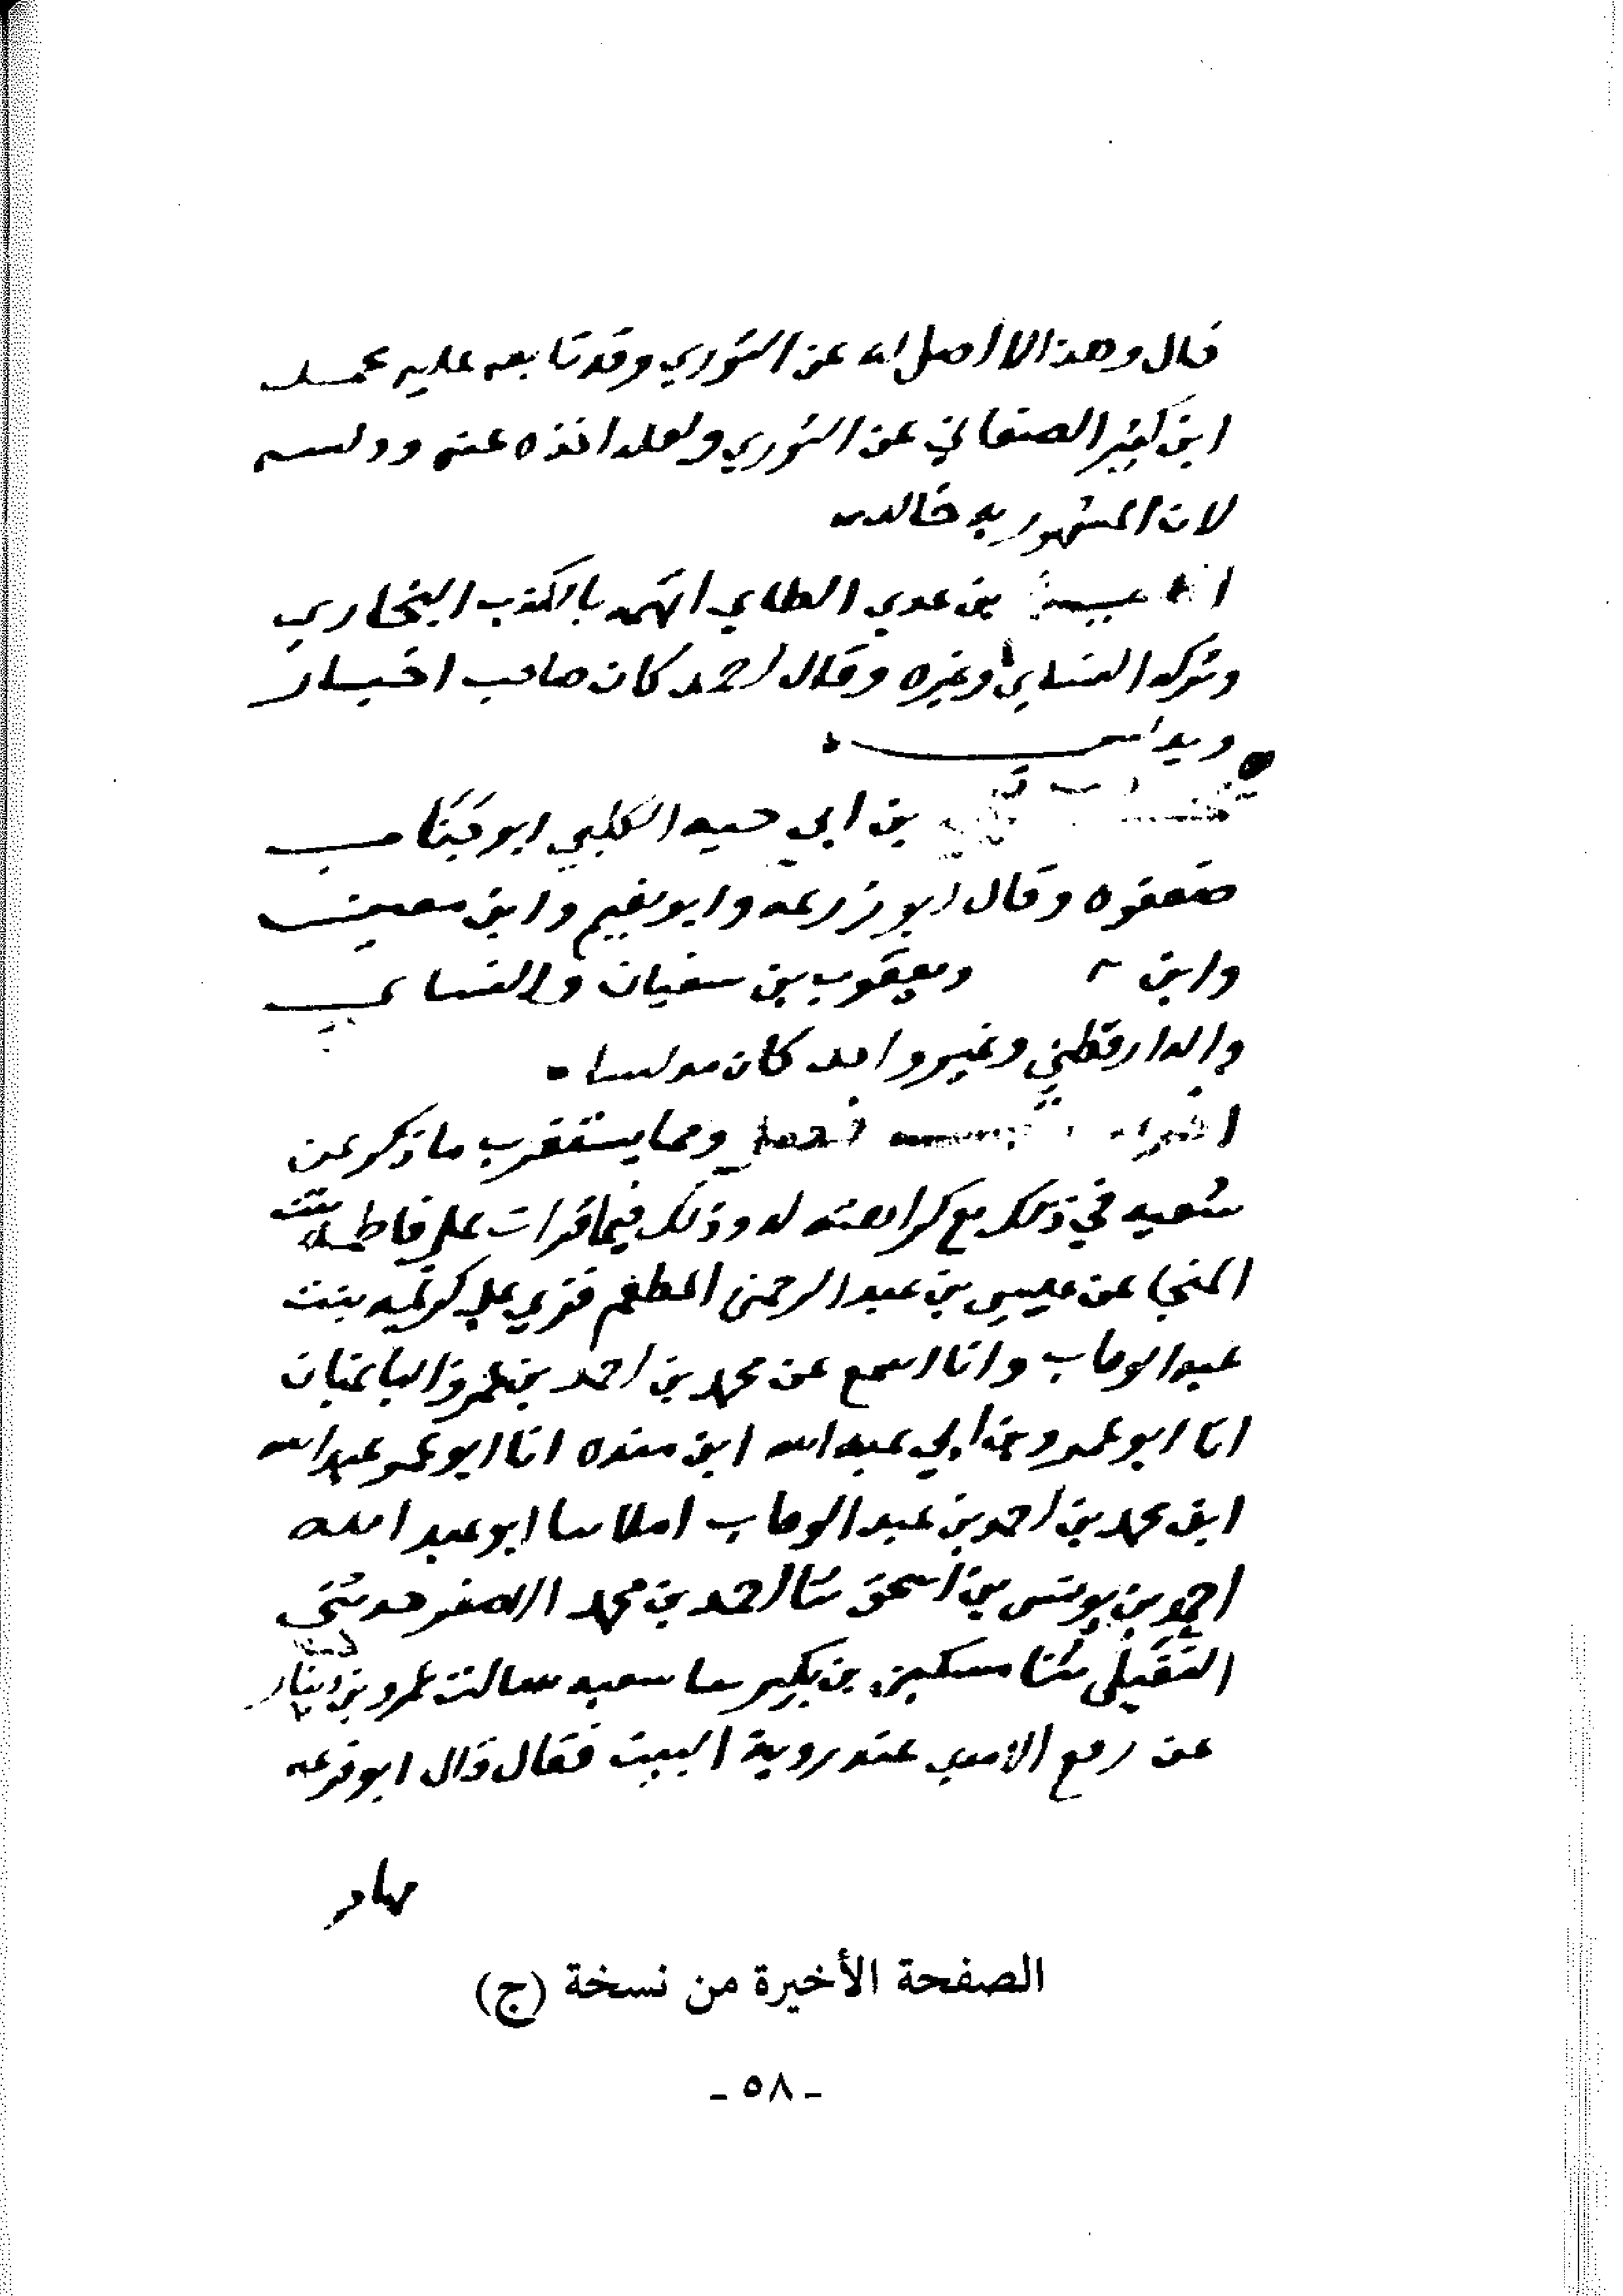 قال وهذا لا اصل له عن الثوري وقد تابعه عليه محمد
ابن كثير الصنعاني عن الثوري ولعله اخذه عنه ودلسه
لان المشهور به خالد
بن عدي الطاي اتهمه بالكذب البخاري
وتركه النساي وغيره وقال احمد كان صاحب اخبار
ويدلس
بن ابي حيه الكلبي ابو جَنَاب
ضعفوه وقال ابو زرعه وابو نعيم وابن معين
وابن ويعقوب بن سفيان والنساي
والدارقطني وغير واحد كان مدلسا
ومما يستغرب ما ذكر عن
شعبه في ذلك مع كراهته له وذلك فيما قرات على فاطمه بنت
المنجا عن عيسى بن عبد الرحمن المطعم قري على كريمه بنت
عبد الوهاب وانا اسمع عن محمد بن احمد بن عمر الباغبان
انا ابو عمرو بن ابي عبد الله ابن منده انا ابو عمر عبد الله
ابن محمد بن احمد بن عبد الوهاب املا سا ابو عبد الله
احمد بن يونس بن اسحق ثنا احمد بن محمد الاصفر حدثني
النُّفَيلي ثنا مسكين بن بكير سا شعبه سالت عمرو بن دينار
عن رفع الايدي عند روية البيت فقال قال ابو قزعه
الصفحة الأخيرة من نسخة (ج)
- ٥٨ -